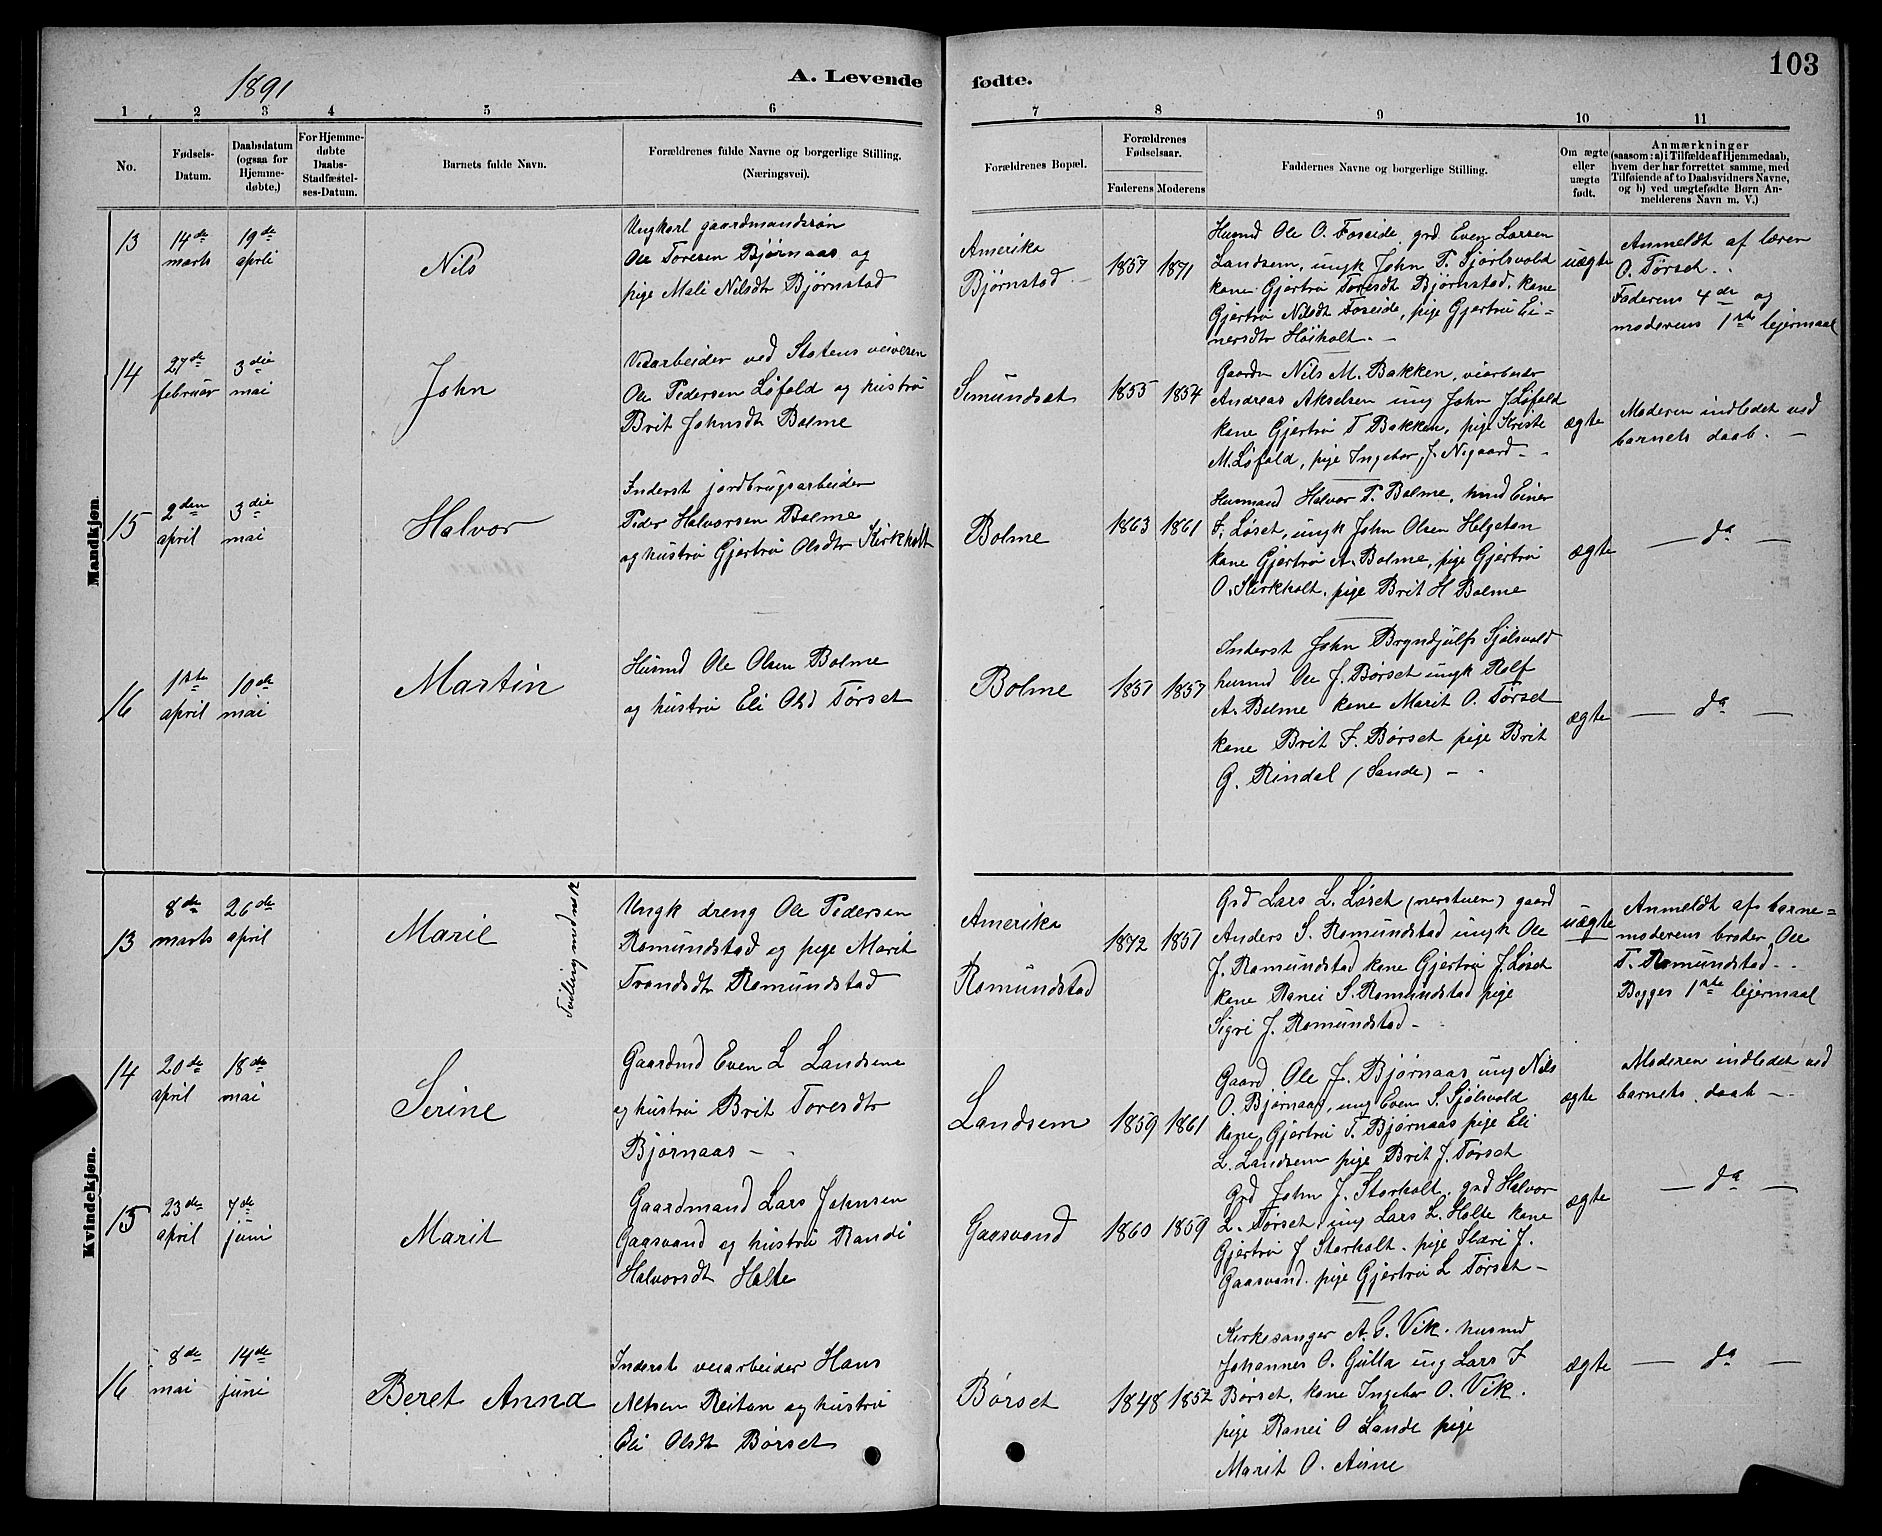 1891
A. Levende
fødte.
103
1 2 3 4 5 6 7 8 9 10 11
No.
Fødsels-
Datum.
Daabsdatum
(ogsaa for
Hjemme-
døbte.)
For Hjemme-
døbte
Daabs-
Stadfæstel-
ses-Datum.
Barnets fulde Navn.
Forældrenes fulde Navne og borgerlige Stilling.
(Næringsvei).
Forældrenes Bopæl.
Forældrenes
Fødselsaar.
Faderens Moderens
Faddernes Navne og borgerlige Stilling.
Om ægte
eller
uægte
født.
Anmærkninger
(saasom: a) i Tilfælde af Hjemmedaab,
hvem der har forrettet samme, med
Tilføiende af to Daabsvidners Navne,
og b) ved uægtefødte Børn An-
melderens Navn m. V.)
Mandkjøn.
13
14de
marts
19de
april
Nils
Ungkarl gaardmandssøn
Ole Toresen Bjørnaas og
pige Mali Nilsdtr Bjørnstad
Amerika
Bjørnstad
1857 1871
Husmd Ole O. Foseide, grd Even Larsen
Landsem, ungk John T. Sjølsvold
kone Gjertrü Toresdt Bjørnstad, kone
Gjertrü Nilsdt Foseide, pige Gjertrü Ei=
nersdtr Høiholt. –
uægte
Anmeldt af lærer
O. Tørset. .
Faderens 4de og
moderens 1ste lejermaal
14
27de
februar
3die
mai
John
Veiarbeider ved Statens veivesen
Ole Pedersen Løfald og hustrü
Brit Johnsdt Bolme
Semundset
1855 1854
Gaardm Nils M. Bakken, veiarbeider
Andreas Akselsen ung John J. Løfald
kone Gjertrü T Bakken, pige Kriste
M. Løfald, pige Ingebor J. Nygaard – -
ægte
Moderen indledet ved
barnets daab. –
15
2den
april
3die
mai
Halvor
Inderst jordbrugsarbeider
Peder Halvorsen Bolme
og hustrü Gjertrü Olsdtr Kirkholt
Bolme
1863 1861
Husmand Halvor P. Bolme, husmd Einer
F. Løset, ungk John Olsen Helgetun
kone Gjertrü A. Bolme, pige Gjertrü
O. Kirkholt, pige Brit H Bolme
ægte
– da –
16
1ste
april
10de
mai
Martin
Husmd Ole Olsen Bolme
og hustrü Eli Olsd Tørset
Bolme
1857 1857
Inderst John Bryndjulfs Sjølsvold
husmd Ole J. Børset ungk Rolf
A. Bolme kone Marit O. Tørset
kone Brit F. Børset pige Brit
G. Rindal (Sande) – -
ægte
– da –
Kvindekjøn.
13
8de
marts
26de
april
Marie
Tvilling med
Ungk dreng Ole Pedersen
Romundstad og pige Marit
Trondsdtr Romundstad
Amerika
Romundstad
1872 1857
Grd Lars L. Løset (nerstuen) gaard
Anders S. Romundstad ungk Ole
J. Romundstad kone Gjertrü J. Løset
kone Ranei S. Romundstad pige
Sigri J. Romundstad –
uægte
Anmeldt af barne=
moderens broder Ole
T. Romundstad - .
Begges 1ste lejermaal
14
20de
april
18de
mai
Serine
Gaardmd Even L Landsem
og hustrü Brit Toresdtr
Bjørnaas –
Landsem
1859 1861
Gaard Ole J. Bjørnaas ung Nils
O. Bjørnaas, ung Even S. Sjølsvold
kone Gjertrü T. Bjørnaas pige Eli
L. Landsem pige Brit J. Tørset
ægte
Moderen indledet ved
barnets daab –
15
23de
april
7de
juni
Marit
Gaardmand Lars Johnsen
Gaasvand og hustrü Randi
Halvorsdt Holte
Gaasvand
1860 1859
Grd John J. Storholt, grd Halvor
L. Tørset, ung Lars L. Holte kone
Gjertrü J Storholt. pige Sheri J.
Gaasvand. pige Gjertrü L Tørset –
ægte
– da –
16
8de
mai
14de
juni
Beret Anna
Inderst veiarbeider Hans
Nilsen Reitan og hustrü
Eli Olsdt Børset
Børset
1848 1852
Kirkesanger A. G. Vik. husmd
Johannes O. Gulla ung Lars F
Børset, kone Ingebor O. Vik.
pige Ranei O Lande pige
Marit O. Aune
ægte
– da –